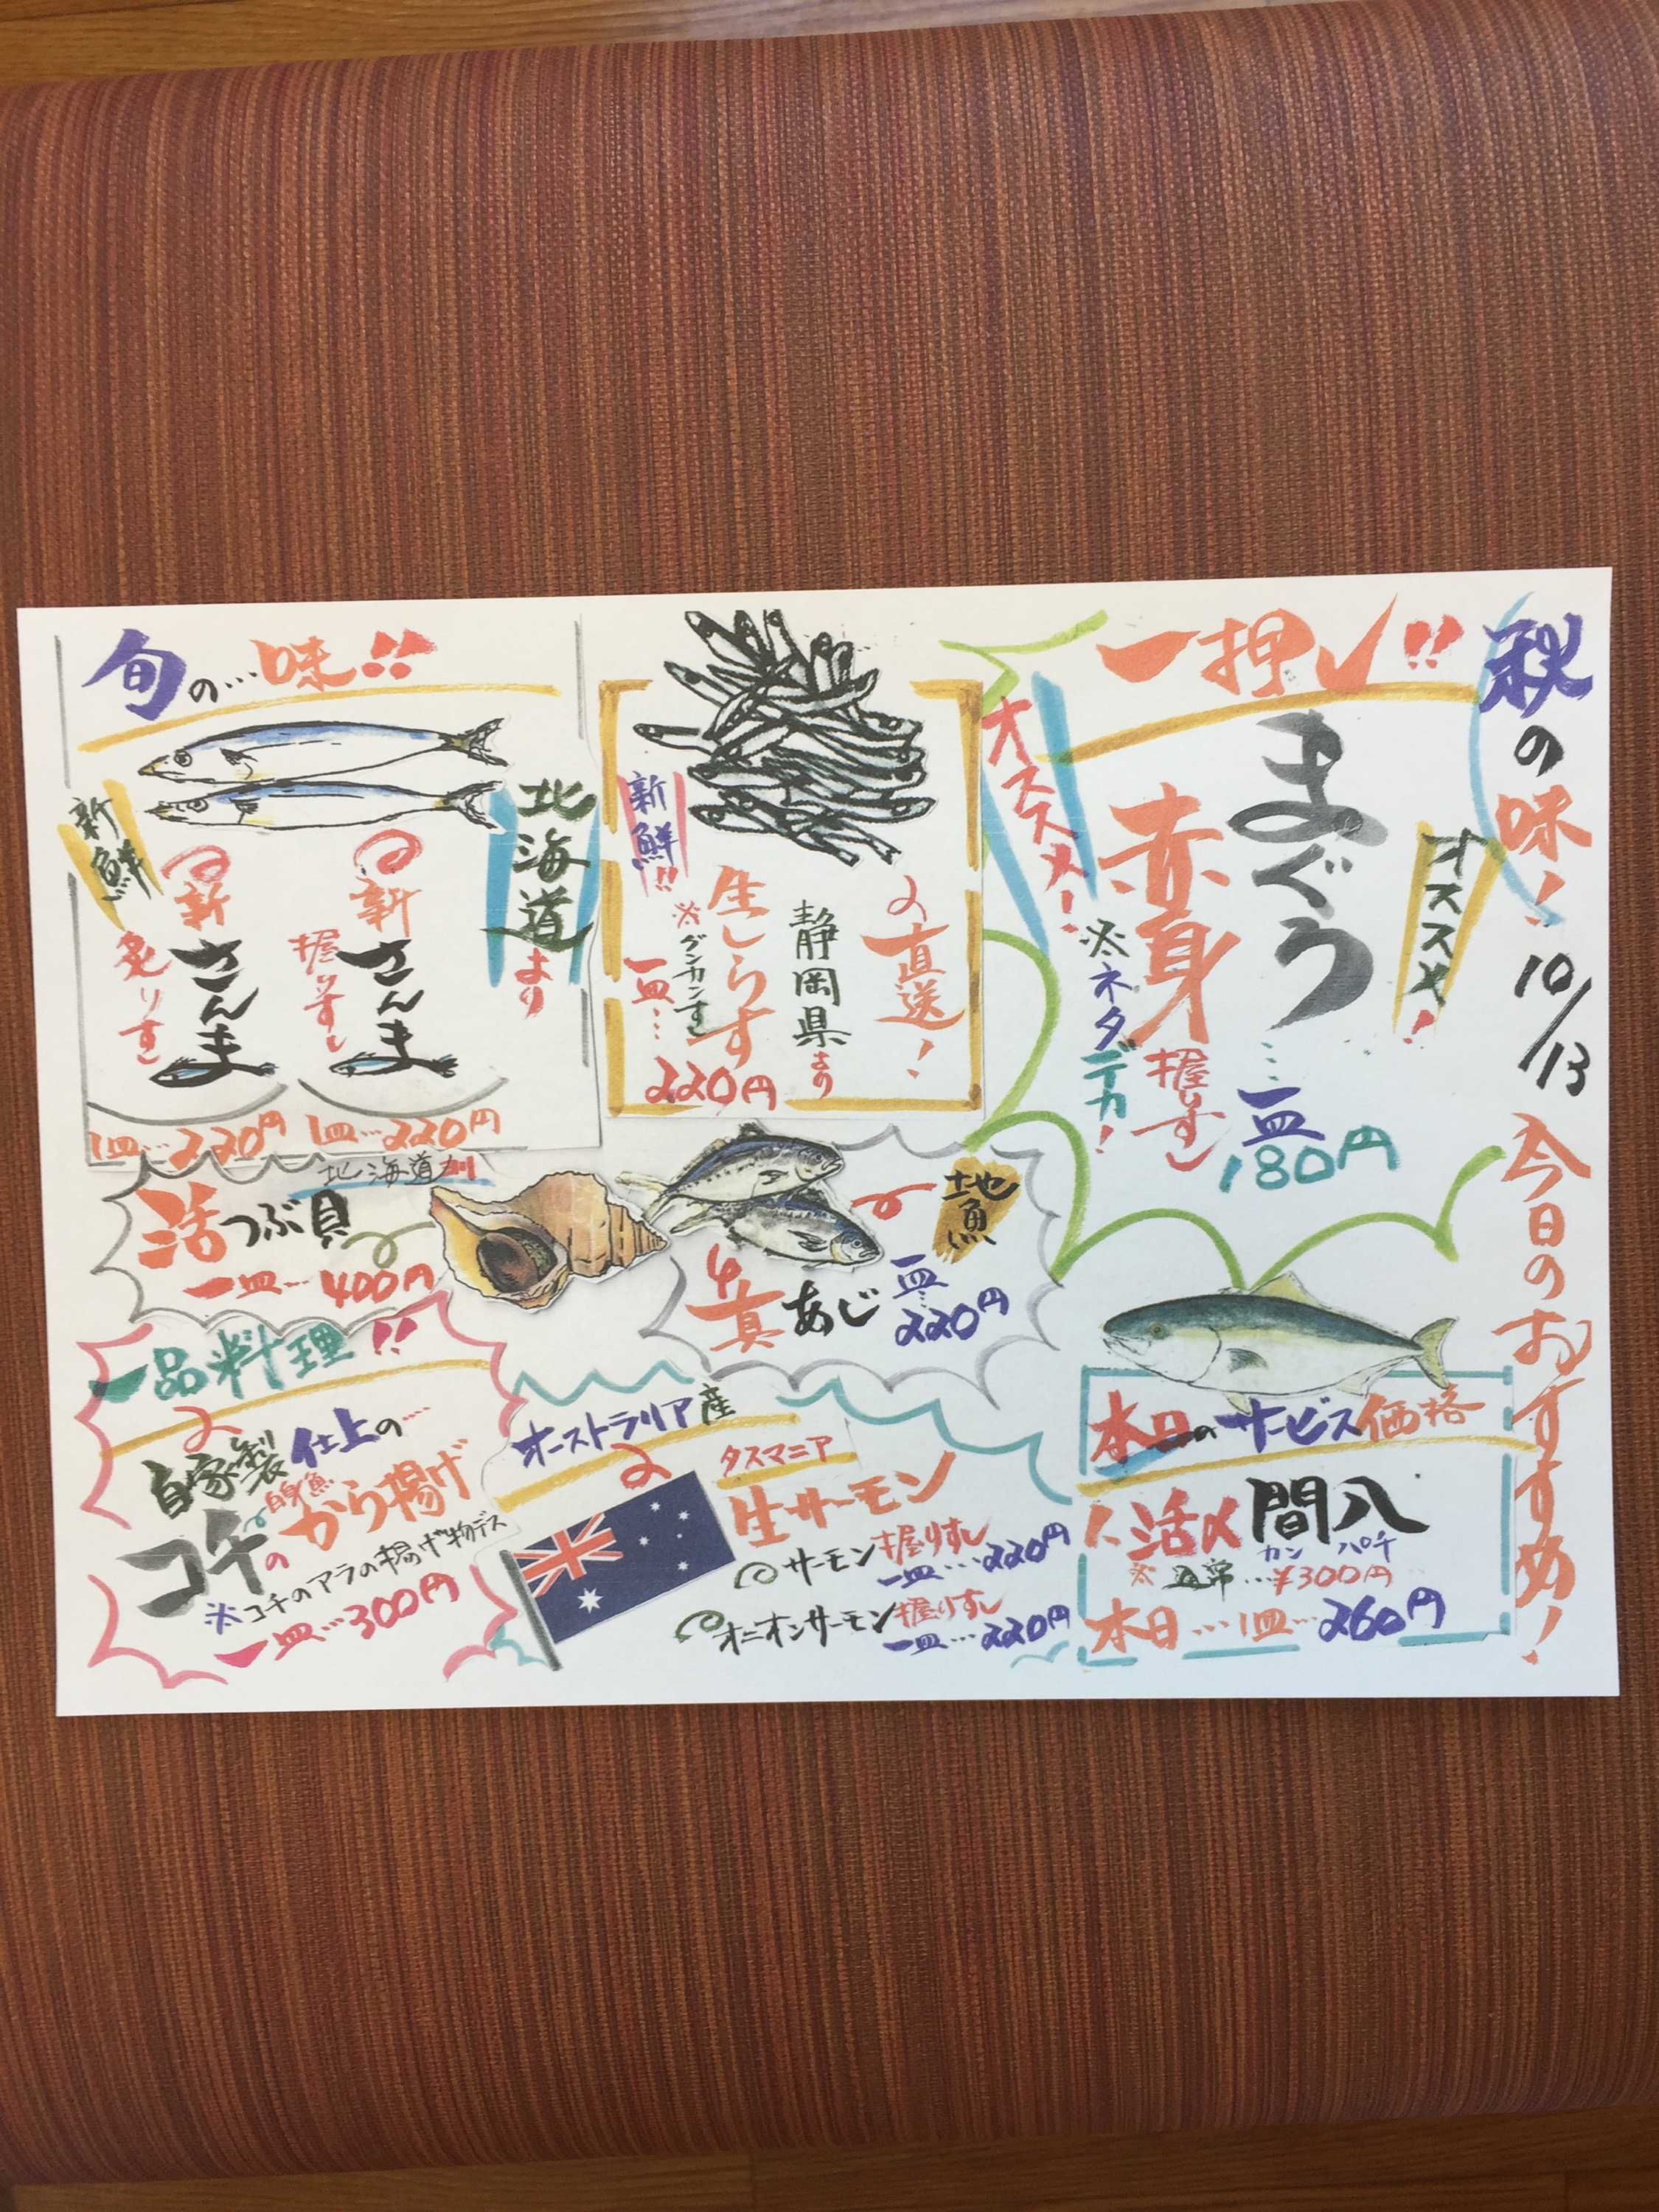 秋の味!
10/13
今日のおすすめ!
一押し!!
オススメ!
まぐろ
赤身
握りすし
※ネタデカ!
オススメ!
一皿
180円
直送!
静岡県より
生しらす
※グンカンすし
新鮮!!
一皿…
220円
旬の…味!!
北海道より
新鮮
新さんま
握りすし
1皿…220円
新さんま
炙りすし
1皿…220円
北海道
活つぶ貝
一皿…400円
地魚
真あじ
一皿…
220円
本日のサービス価格
活〆間八
カンパチ
※通常…¥300円
本日…1皿…260円
オーストラリア産
タスマニア
生サーモン
サーモン握りすし
一皿…220円
オニオンサーモン握りすし
一皿…220円
一品料理!!
自家製仕上の…
白身魚
コチのから揚げ
※コチのアラの揚げ物デス
一皿…300円